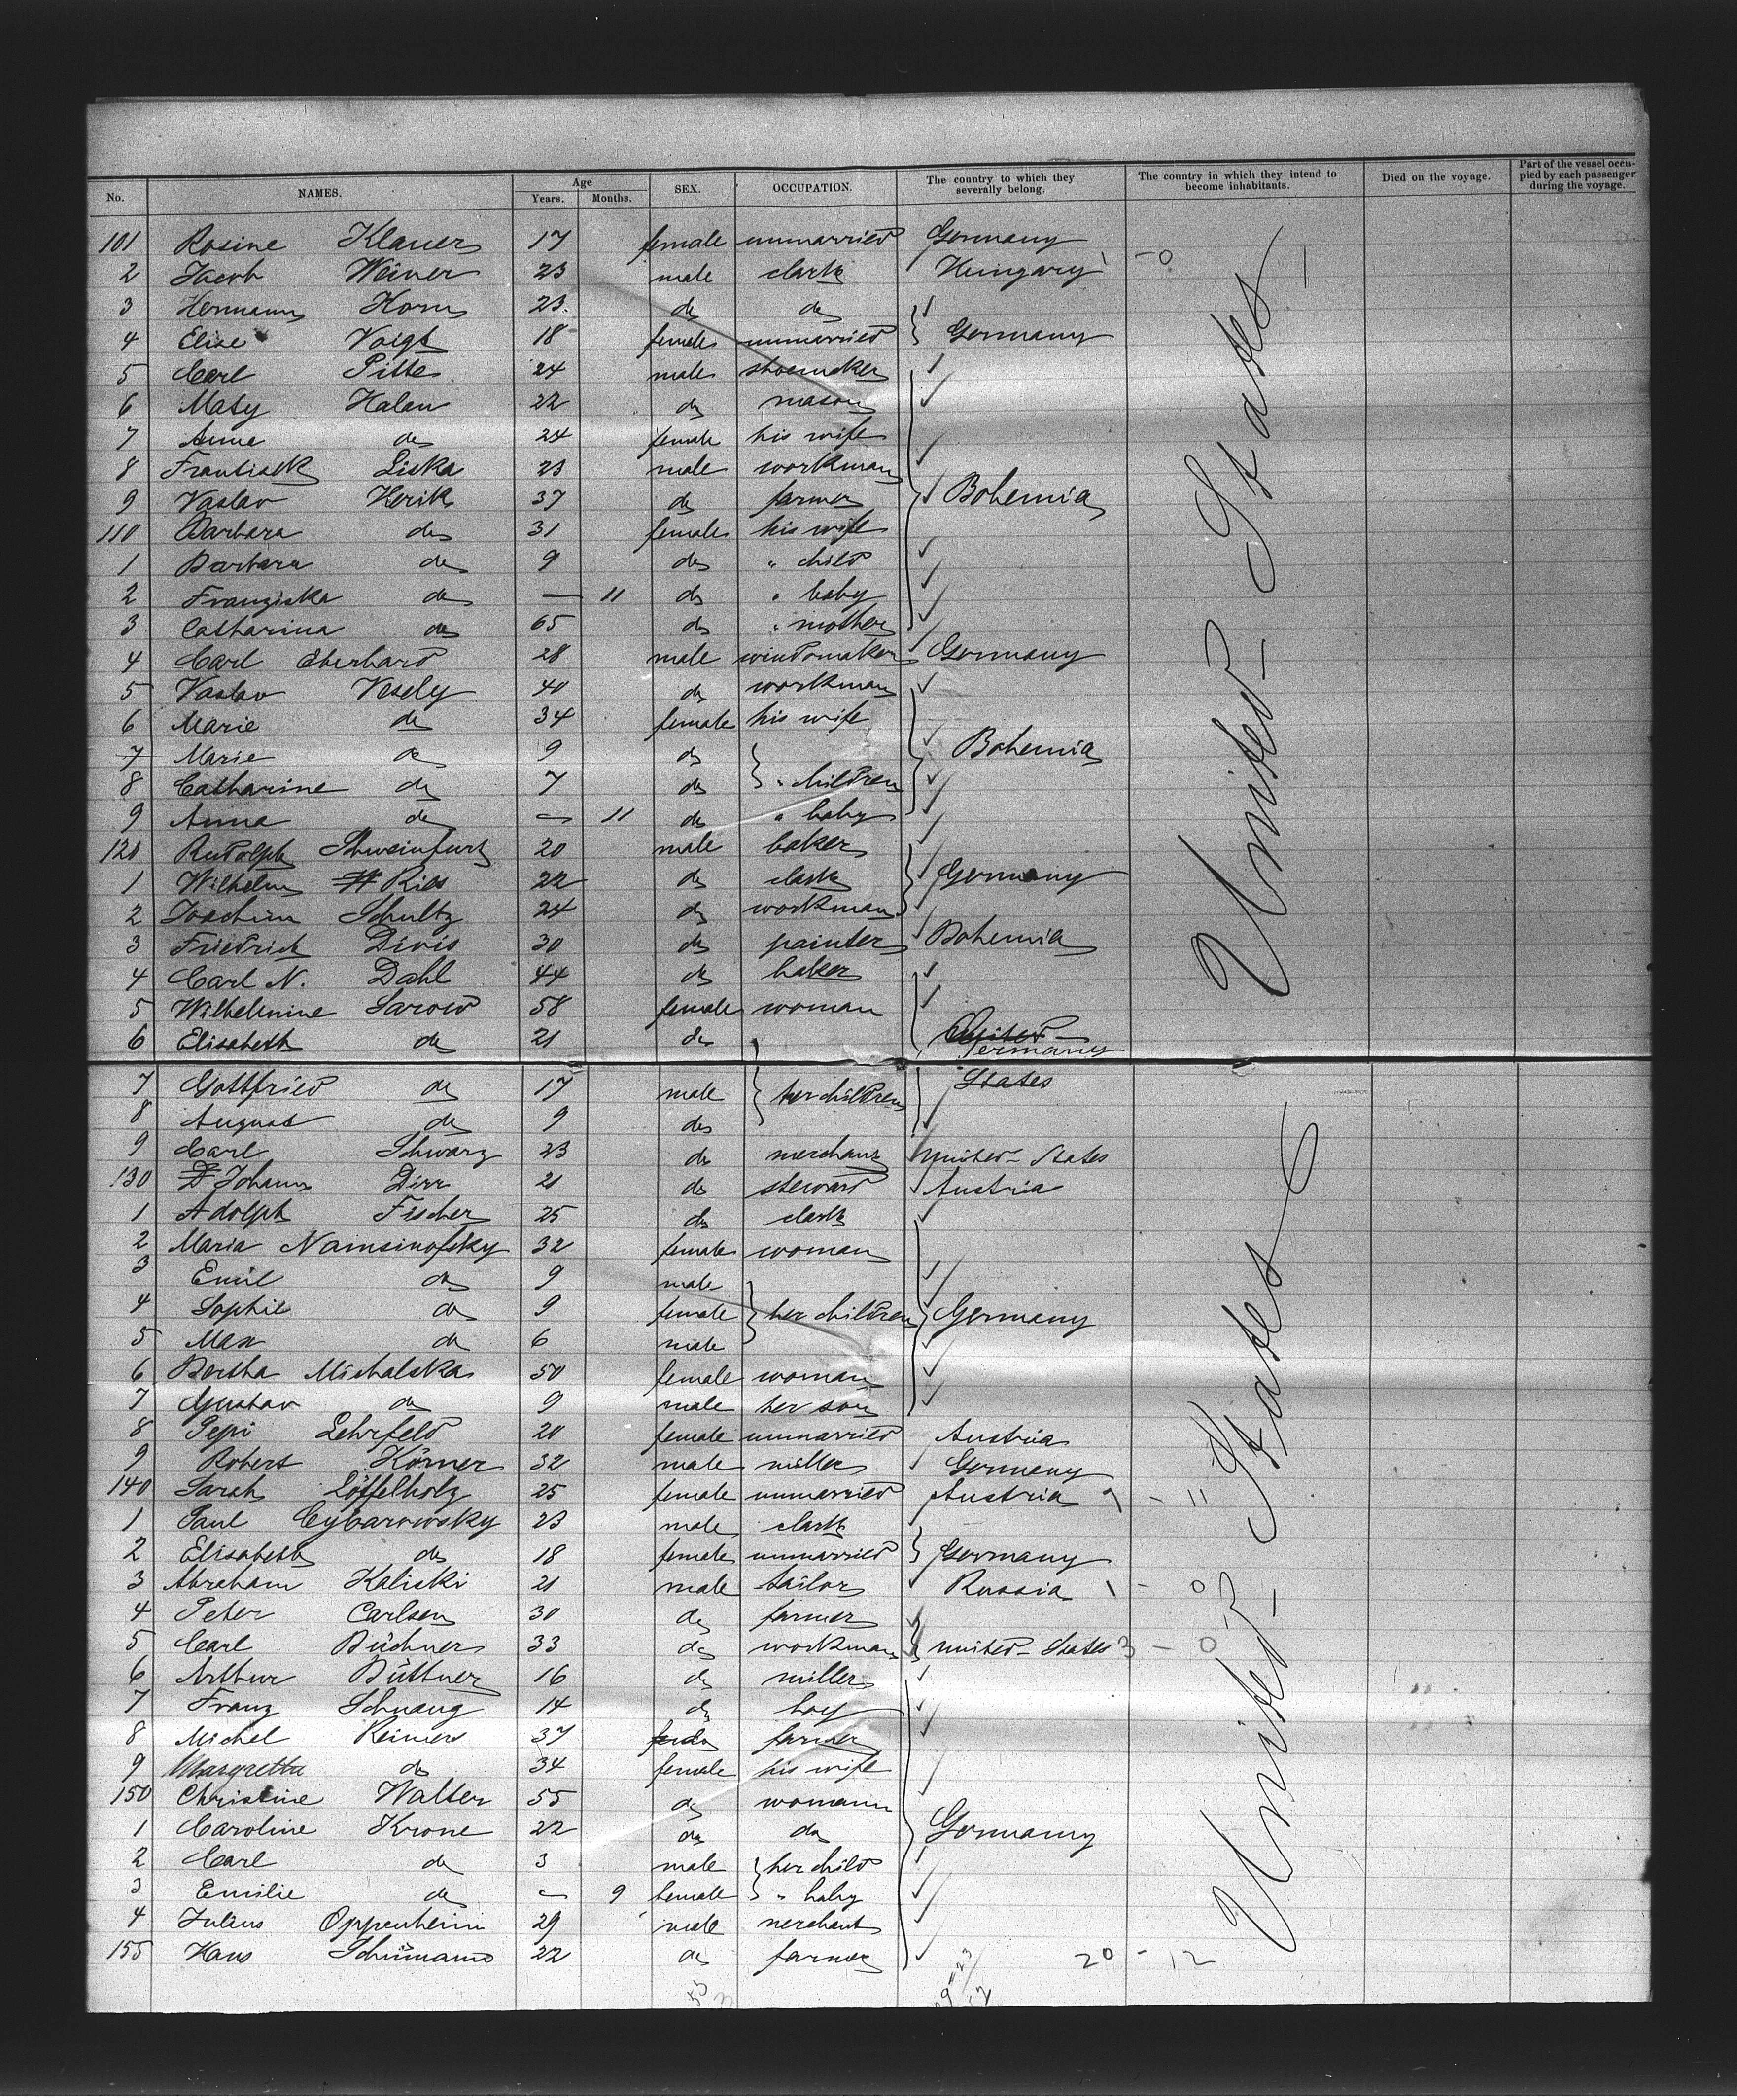 No. NAMES. Age Years. Months. SEX. OCCUPATION. The country to which they severally belong. The country in which they intend to become inhabitants. Died on the voyage. Part of the vessel occupied by each passenger during the voyage.
101 Rosine Klauer 17 female unmarried Germany
2 Jacob Weiner 23 male clark Hungary 1 - 0
3 Hermann Horn 23. do do
4 Elise Voigt 18 female unmarried Germany
5 Carl Pitte 24 male shoemaker
6 Maty Halan 22 do mason
7 Anna do 24 female his wife
8 Frantisek Liska 23 male workman
9 Vaslav Herik 37 do farmer Bohemia
110 Barbara do 31 female his wife
1 Barbara do 9 do " child
2 Franziska do — 11 do " baby
3 Catharina do 65 do " mother
4 Carl Eberhard 28 male windomaker Germany
5 Vaslav Vesely 40 do workman
6 Marie do 34 female his wife
7 Marie do 9 do Bohemia
8 Catharine do 7 do " children
9 Anna do — 11 do " baby
120 Rudolph Schweinfurt 20 male baker
1 Wilhelm Ries 22 do clark Germany
2 Joachim Schultz 24 do workman
3 Friedrich Divis 30 do painter Bohemia
4 Carl N. Dahl 44 do baker
5 Wilhelmine Sarow 58 female woman
6 Elisabeth do 21 do United Germany
7 Gottfried do 17 male her children States
8 August do 9 do
9 Carl Schwarz 23 do merchant united-States
130 Johann Dirr 21 do steward Austria
1 Adolph Fischer 25 do clark
2 Maria Namsinofsky 32 female woman
3 Emil do 9 male
4 Sophie do 9 female her children Germany
5 Max do 6 male
6 Bertha Michalska 50 female woman
7 Gustav do 9 male her son
8 Pepi Lehrfeld 20 female unmarried Austria
9 Robert Körner 32 male miller Germany
140 Sarah Löffelholz 25 female unmarried Austria
1 Paul Cybarowsky 23 male clark
2 Elisabeth do 18 female unmarried Germany
3 Abraham Kaliski 21 male tailor Russia 1 - 0
4 Peter Carlsen 30 do farmer
5 Carl Büchner 33 do workman united-States 3 - 0
6 Arthur Büttner 16 do miller
7 Franz Schnaug 14 do boy
8 Michel Reimers 37 do farmer
9 Margretta do 34 female his wife
150 Christine Walter 55 do womann
1 Caroline Krone 22 do do Germany
2 Carl do 3 male her child
3 Emilie do — 9 female " baby
4 Julius Oppenheim 29 male merchant
155 Hans Schümann 22 do farmer 20 - 12
United-States
United-States